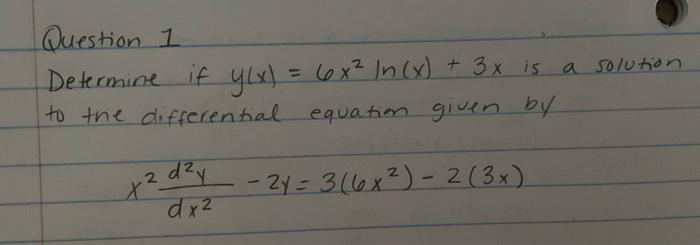 Question 1
Determine if y(x) = 6x² ln(x) + 3x is a solution
to the differential equation given by
x² d²y/dx² - 2y = 3(6x²) - 2(3x)